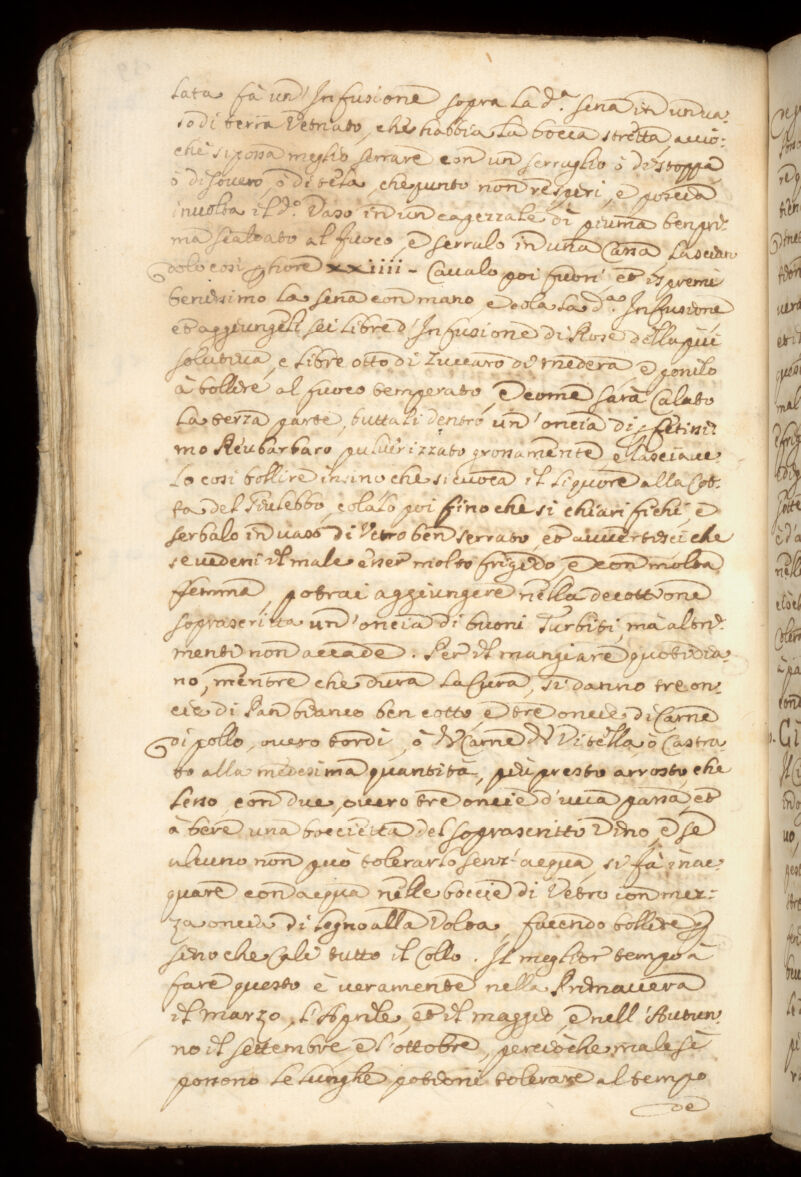 lata fà un' Infusione sopra la d.ª sena in un va-
so di terra Vetriato, che habbia la bocca stretta, acciò-
che si possa meglio serrare con un serraglio ò di stoppa
ò di sovero, ò di tela, che punto non respiri, e poscia
involta il d.º Vaso in un capezzale di piuma ben pri-
ma scaldato al fuoco, e serralo in una Cassa lascian
dolo così p hore xxiiii - Cavalo poi fuori, etispremi
benissimo la sena con mano, e cola la d.ª Infusione
et aggiungeli sei libre d'Infusione di Rose della più
solutiva, e libre otto di Zuccaro di medera, e ponilo
à bollire al fuoco temperato, e come sarà Calato
la terza parte, buttali dentro un'oncia di
mo Reubarbaro pulverizzato grossamente e lasciave
lo così bollire insino che si cuoca il liquore alla Cot-
ta del Giulebbo, colalo poi fino che si chiarifichi, e
serbalo in vaso di Vetro ben serrato, et avvertisci che
se vederi il male esser molto frigido, e con molta
flemma, potrai aggiungere nella decottione
soprascritta un'oncia di buoni Turbiti, mà altri-
menti non accade. Per il mangiare quotidia-
no, mentre che dura la Cura, si danno tre on-
cie di Pan bianco ben cotto e tre oncie di Carne
di pollo, overo tordi, ò di Carne di Vitella, ò Castra
to alla medesima quantità, più presto arrosto, che
lesso, con due, overo tre oncie d'uva passa, et
à bere una boccietta del soprascritto Vino, e se
alcuno non può tolerarlo senz'acqua, si fà inac-
quare con acqua nelle boccie di Vetro con mez-
za oncia di legno alla Volta, facendo bollire p
sino che Cali tutto il Collo. Il meglior tempo à
fare questo è veramente nella Primavera
il marzo, l'Aprile, et il maggio, e nell'Autun-
no il settembre e l'ottobre, perciòche male si
possono le lunghe potioni tolerare al tempo
de